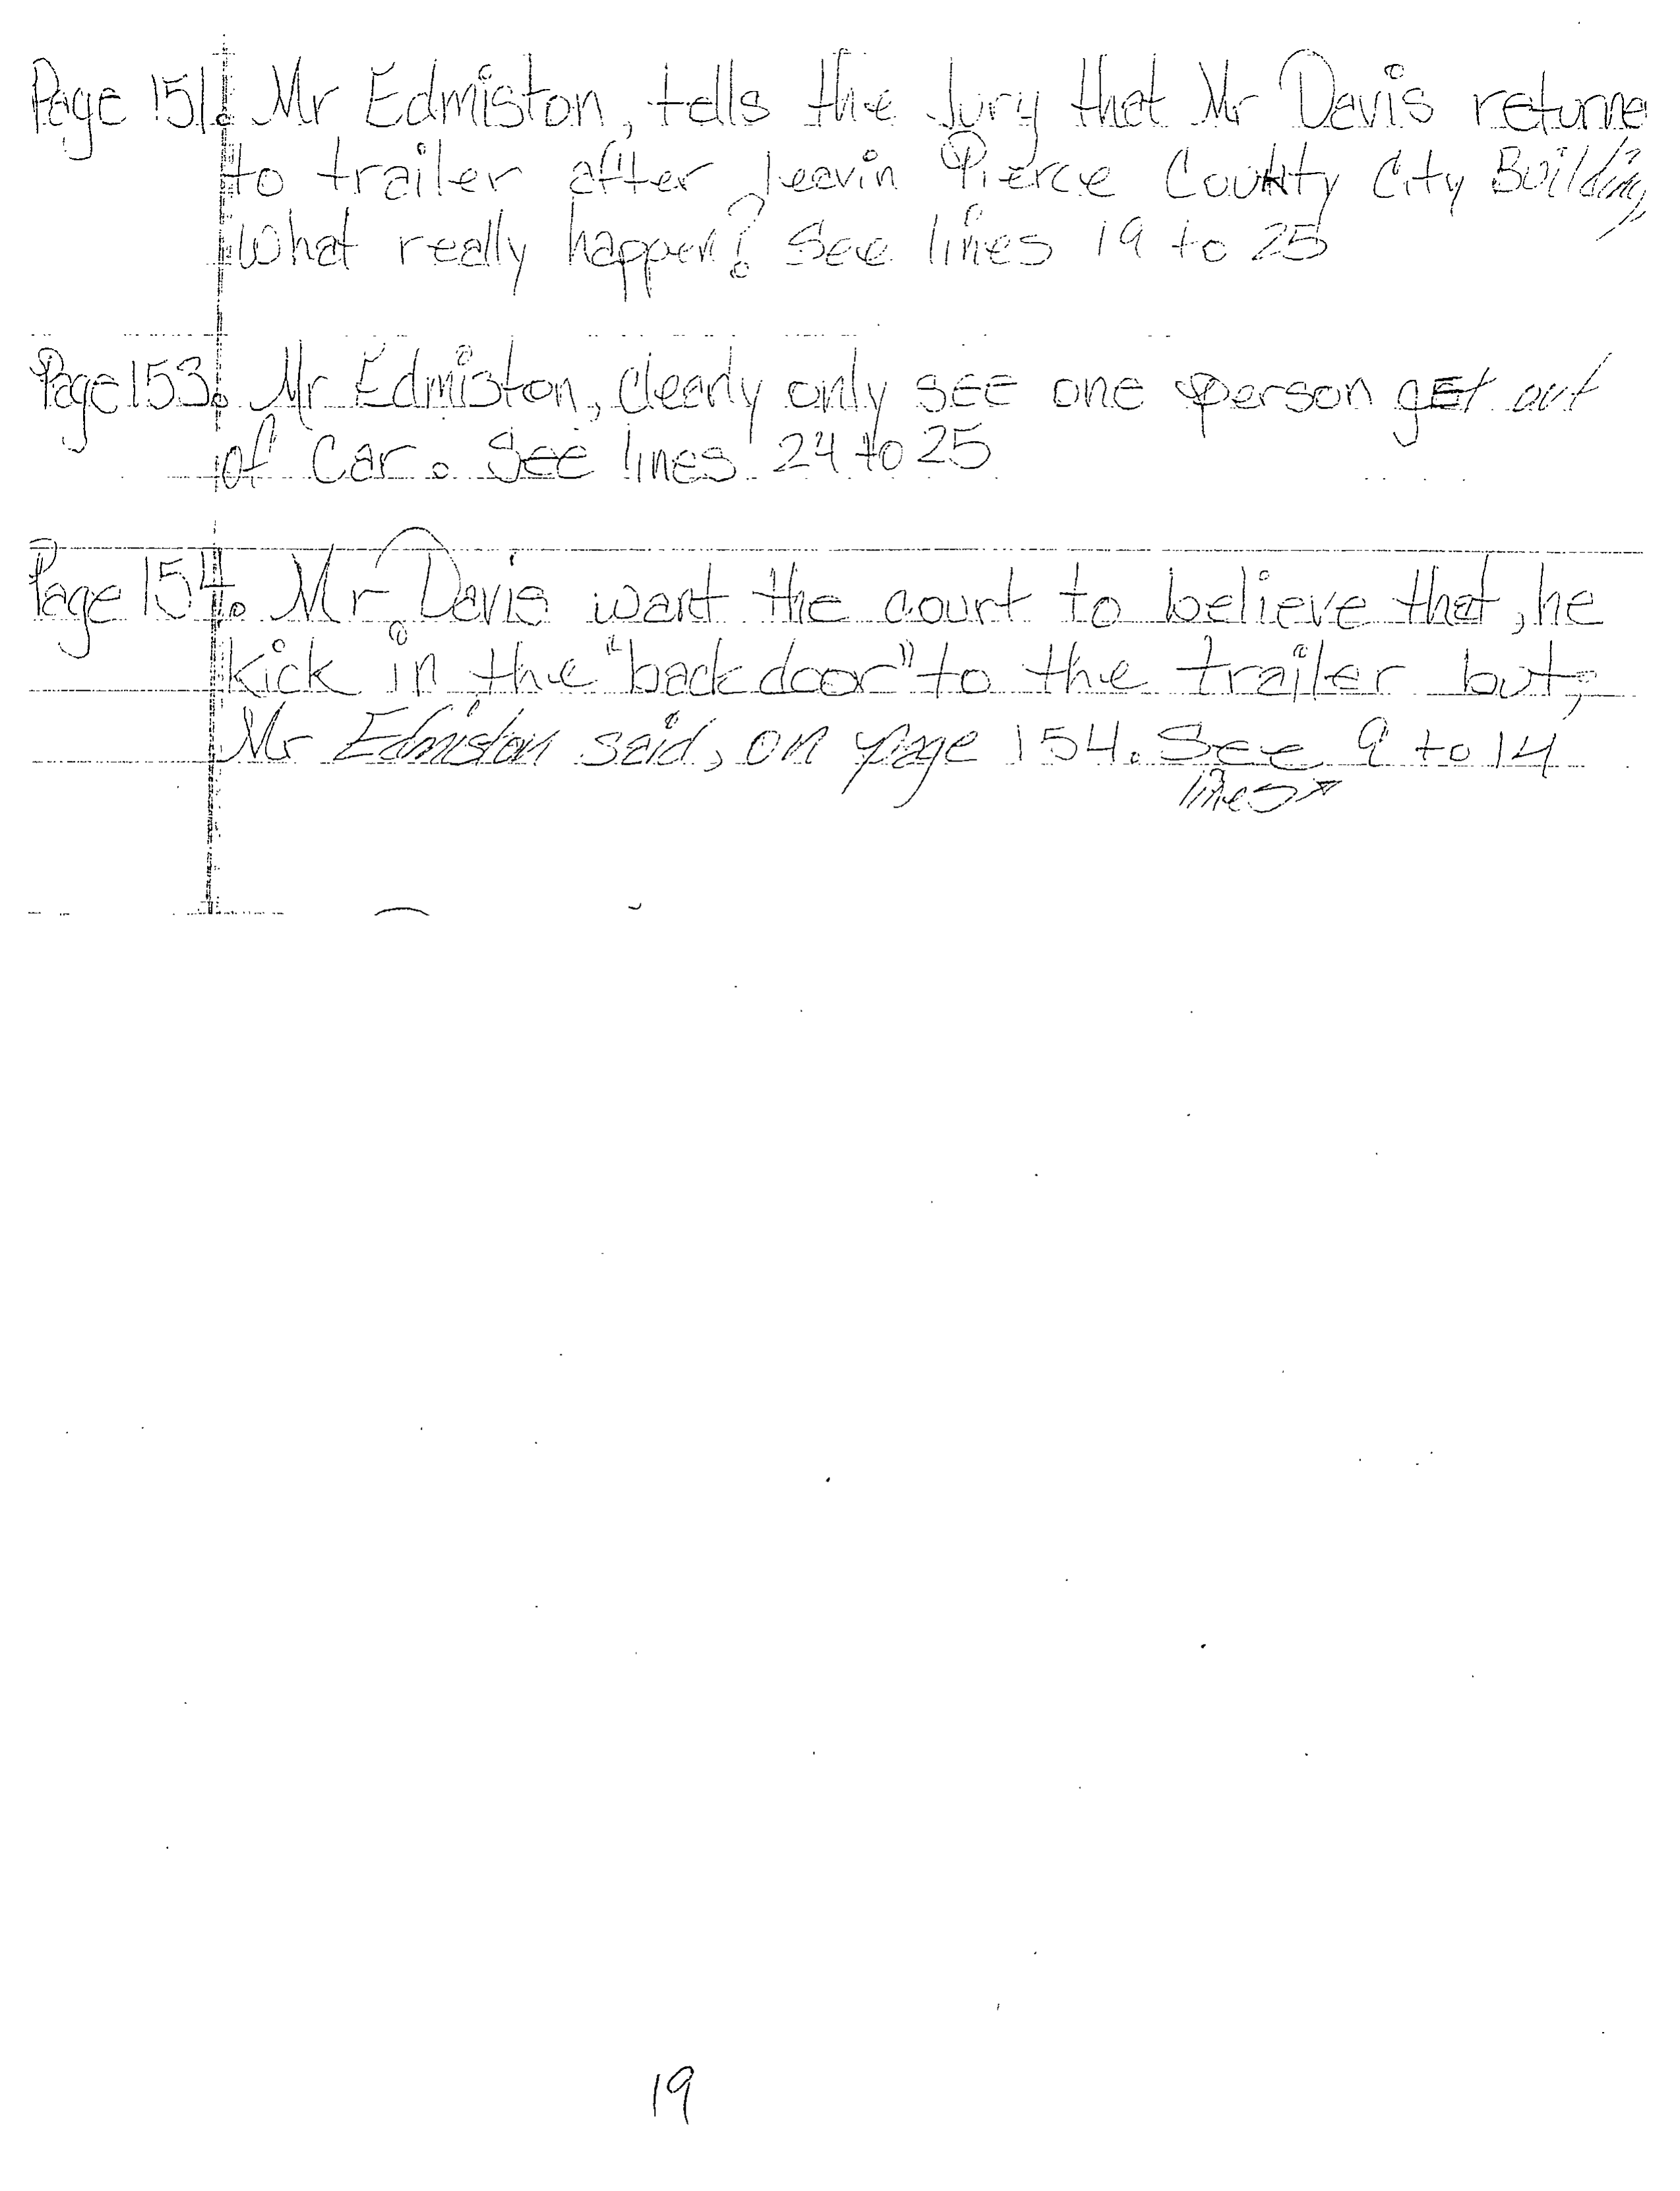 Page 151. Mr Edmiston, tells the Jury that Mr Davis returne
to trailer after leavin Pierce County City Building,
What really happen? See lines 19 to 25
Page 153. Mr Edmiston, clearly only see one person get out
of Car. See lines 24 to 25
Page 154. Mr Davis want the court to believe that, he
kick in the "back door" to the trailer but,
Mr Edmiston said, on page 154. See 9 to 14
lines
19